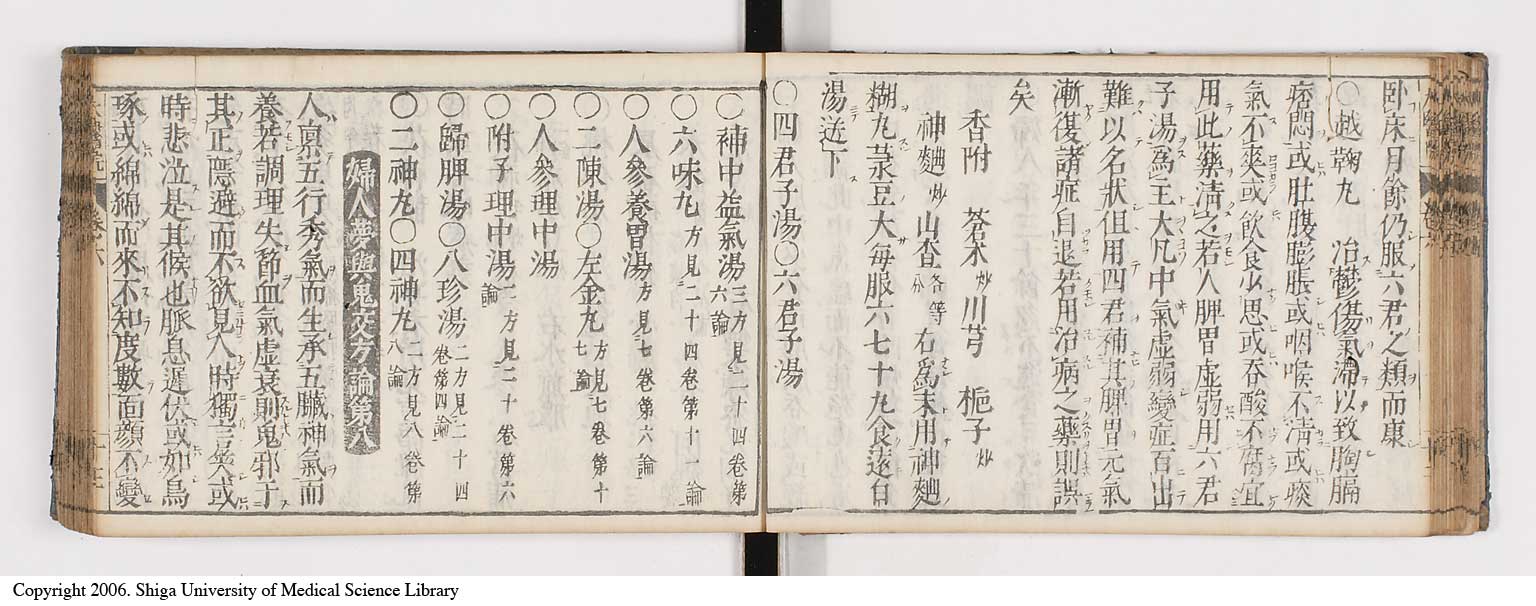 卧床月餘仍服六君之類而康
〇越鞠丸　治鬱傷氣滯以致胸膈
痞悶或肚腹膨脹或咽喉不清或痰
氣不爽或飲食少思或吞酸不腐宜
用此藥清之若人脾胃虛弱用六君
子湯爲主大凡中氣虛弱變症百出
難以名狀但用四君補其脾胃元氣
漸復諸症自退若用冶病之藥則誤
矣
香附　蒼朮炒川芎　梔子炒
神麯炒山査各等分右爲末用神麯
糊丸菉豆大每服六七十丸食遠白
湯送下
〇四君子湯〇六君子湯
〇補中益氣湯三方見二十四卷第六論
〇六味丸方見二十四卷第十一論
〇人參養胃湯方見七卷第六論
〇二陳湯〇左金丸方見七卷第十七論
〇人參理中湯
〇附子理中湯二方見二十卷第六論
〇歸脾湯〇八珍湯二方見二十四卷第四論
〇二神丸〇四神丸二方見八卷第八論
婦人夢與鬼交方論第八
人禀五行秀氣而生承五臟神氣而
養若調理失節血氣虛衰則鬼邪于
其正隱避而不欲見人時獨言笑或
時悲泣是其候也脈息遲伏或如鳥
啄或綿綿而來不知度數面顔不變
Copyright 2006. Shiga University of Medical Science Library